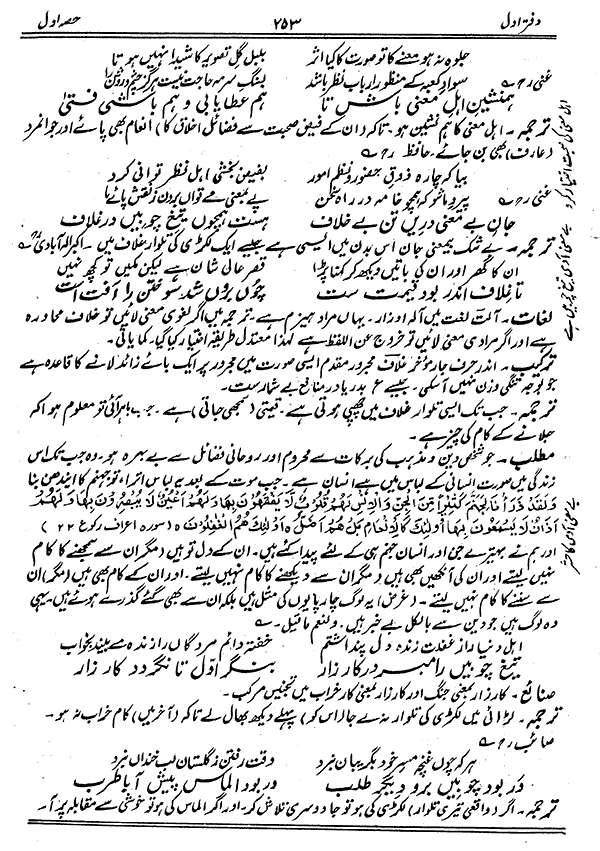 دفتر اول ۲۵۳ حصہ اول
جلوہ نہ ہو معنے کا تو صورت کا کیا اثر بلبل گل تصویر کا شیدا نہیں ہوتا
غنی رح سواد کعبہ کے منظور ارباب نظر باشد بسنگ سرمہ حاجت نیست ہرگز چشم روشن را
ہمنشین اہل معنی باش تا ہم عطا یابی و ہم باشی فتیٰ
ترجمہ۔ اہل معنی کا ہم نشین ہو۔ تاکہ (ان کے فیض صحبت سے فضائل اخلاق کا) انعام بھی پائے اور جوانمرد
(عارف) بھی بن جائے۔ حافظ رح
بیا کہ چارہ ذوق حضور و نظم امور بفیض بخشی اہل نظر توانی کرد
غنی رح پیروانم کہ ہمچو خامہ در راہ سخن بے معنی مے تواں بردن ز نقش پائے ما
جان بے معنی دریں تن بے خلاف ہست ہمچوں تیغ چوبیں در غلاف
ترجمہ۔ بے شک بے معنی جان اس بدن میں ایسی ہے جیسے ایک لکڑی کی تلوار غلاف میں۔ اکبر الہ آبادی رح
ان کا گھر اور ان کی باتیں دیکھ کر کہنا پڑا قصر عالی شان ہے لیکن مکیں تو کچھ نہیں
تا غلاف اندر بود قیمت ست چوں بروں شد سوختن را آلت است
لغات۔ آلت لغت میں آلہ اوزار۔ یہاں مراد ہیزم ہے۔ ترجمہ میں اگر لغوی معنی لائیں تو خلاف محاورہ
ہے اور اگر مرادی معنی لائیں تو خروج عن اللفظ ہے لہذا معتدل طریقہ اختیار کیا گیا۔ کما یاتی۔
ترکیب۔ اندر حرف جار مؤخر غلاف مجرور مقدم ایسی صورت میں مجرور پر ایک بائے زائد لانے کا قاعدہ ہے
جو بوجہ تنگی وزن نہیں آسکی۔ جیسے ع بدریا در منافع بے شمار ست۔
ترجمہ۔ جب تک ایسی تلوار غلاف میں چھپی ہوتی ہے۔ قیمتی (سمجھی جاتی) ہے۔ جب باہر آئی تو معلوم ہوا کہ
جلانے کے کام کی چیز ہے۔
مطلب۔ جو شخص دین و مذہب کی برکات سے محروم اور روحانی فضائل سے بے بہرہ ہو۔ وہ جب تک اس
زندگی میں صورت انسانی کے لباس میں ہے انسان ہے۔ جب موت کے بعد یہ لباس اترا۔ تو جہنم کا ایندھن بنا
وَلَقَدْ ذَرَأْنَا لِجَهَنَّمَ كَثِيرًا مِّنَ الْجِنِّ وَالْإِنسِ لَهُمْ قُلُوبٌ لَّا يَفْقَهُونَ بِهَا وَلَهُمْ أَعْيُنٌ لَّا يُبْصِرُونَ بِهَا وَلَهُمْ
آذَانٌ لَّا يَسْمَعُونَ بِهَا أُولَٰئِكَ كَالْأَنْعَامِ بَلْ هُمْ أَضَلُّ أُولَٰئِكَ هُمُ الْغَافِلُونَ (سورہ اعراف رکوع ۲۲)
اور ہم نے بہتیرے جن اور انسان جہنم ہی کے لئے پیدا کئے ہیں۔ ان کے دل تو ہیں (مگر ان سے سمجھنے کا کام
نہیں لیتے اور ان کی آنکھیں بھی ہیں (مگر ان سے دیکھنے کا کام نہیں لیتے۔ اور ان کے کام بھی ہیں (مگر) ان
سے سننے کا کام نہیں لیتے۔ (غرض) یہ لوگ چارپایوں کی مثل ہیں بلکہ ان سے بھی گئے گذرے ہوئے ہیں۔ یہی
وہ لوگ ہیں جو دین سے بالکل بے خبر ہیں۔ ولنعم ماقیل۔
اہل دنیا را ز غفلت زندہ دل پنداشتم خفتہ دائم مردگاں را زندہ مے بیند بخواب
تیغ چوبیں را مبر در کارزار بنگر اول تا نگردد کار زار
صنائع۔ کارزار بمعنی جنگ اور کار زار بمعنی کار خراب میں تجنیس مرکب۔
ترجمہ۔ لڑائی میں لکڑی کی تلوار نہ لے جا (اس کو) پہلے دیکھ بھال لے تاکہ (آخر میں) کام خراب نہ ہو۔
صائب رح
ہر کہ چوں غنچہ سر خود بگریبان نبرد وقت رفتن ز گلستان لب خنداں نبرد
ور بود چوبیں برو دیگر طلب ور بود الماس پیش آ با طرب
ترجمہ۔ اگر (واقعی تیری تلوار) لکڑی کی ہو تو جا دوسری تلاش کر۔ اور اگر الماس کی ہو تو خوشی سے مقابلہ پر آ۔